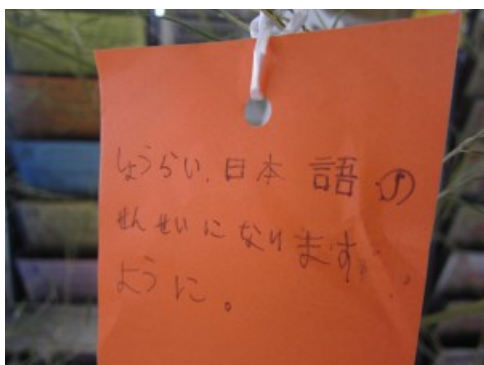 しょうらい、日本語の
せんせいになります
ように。